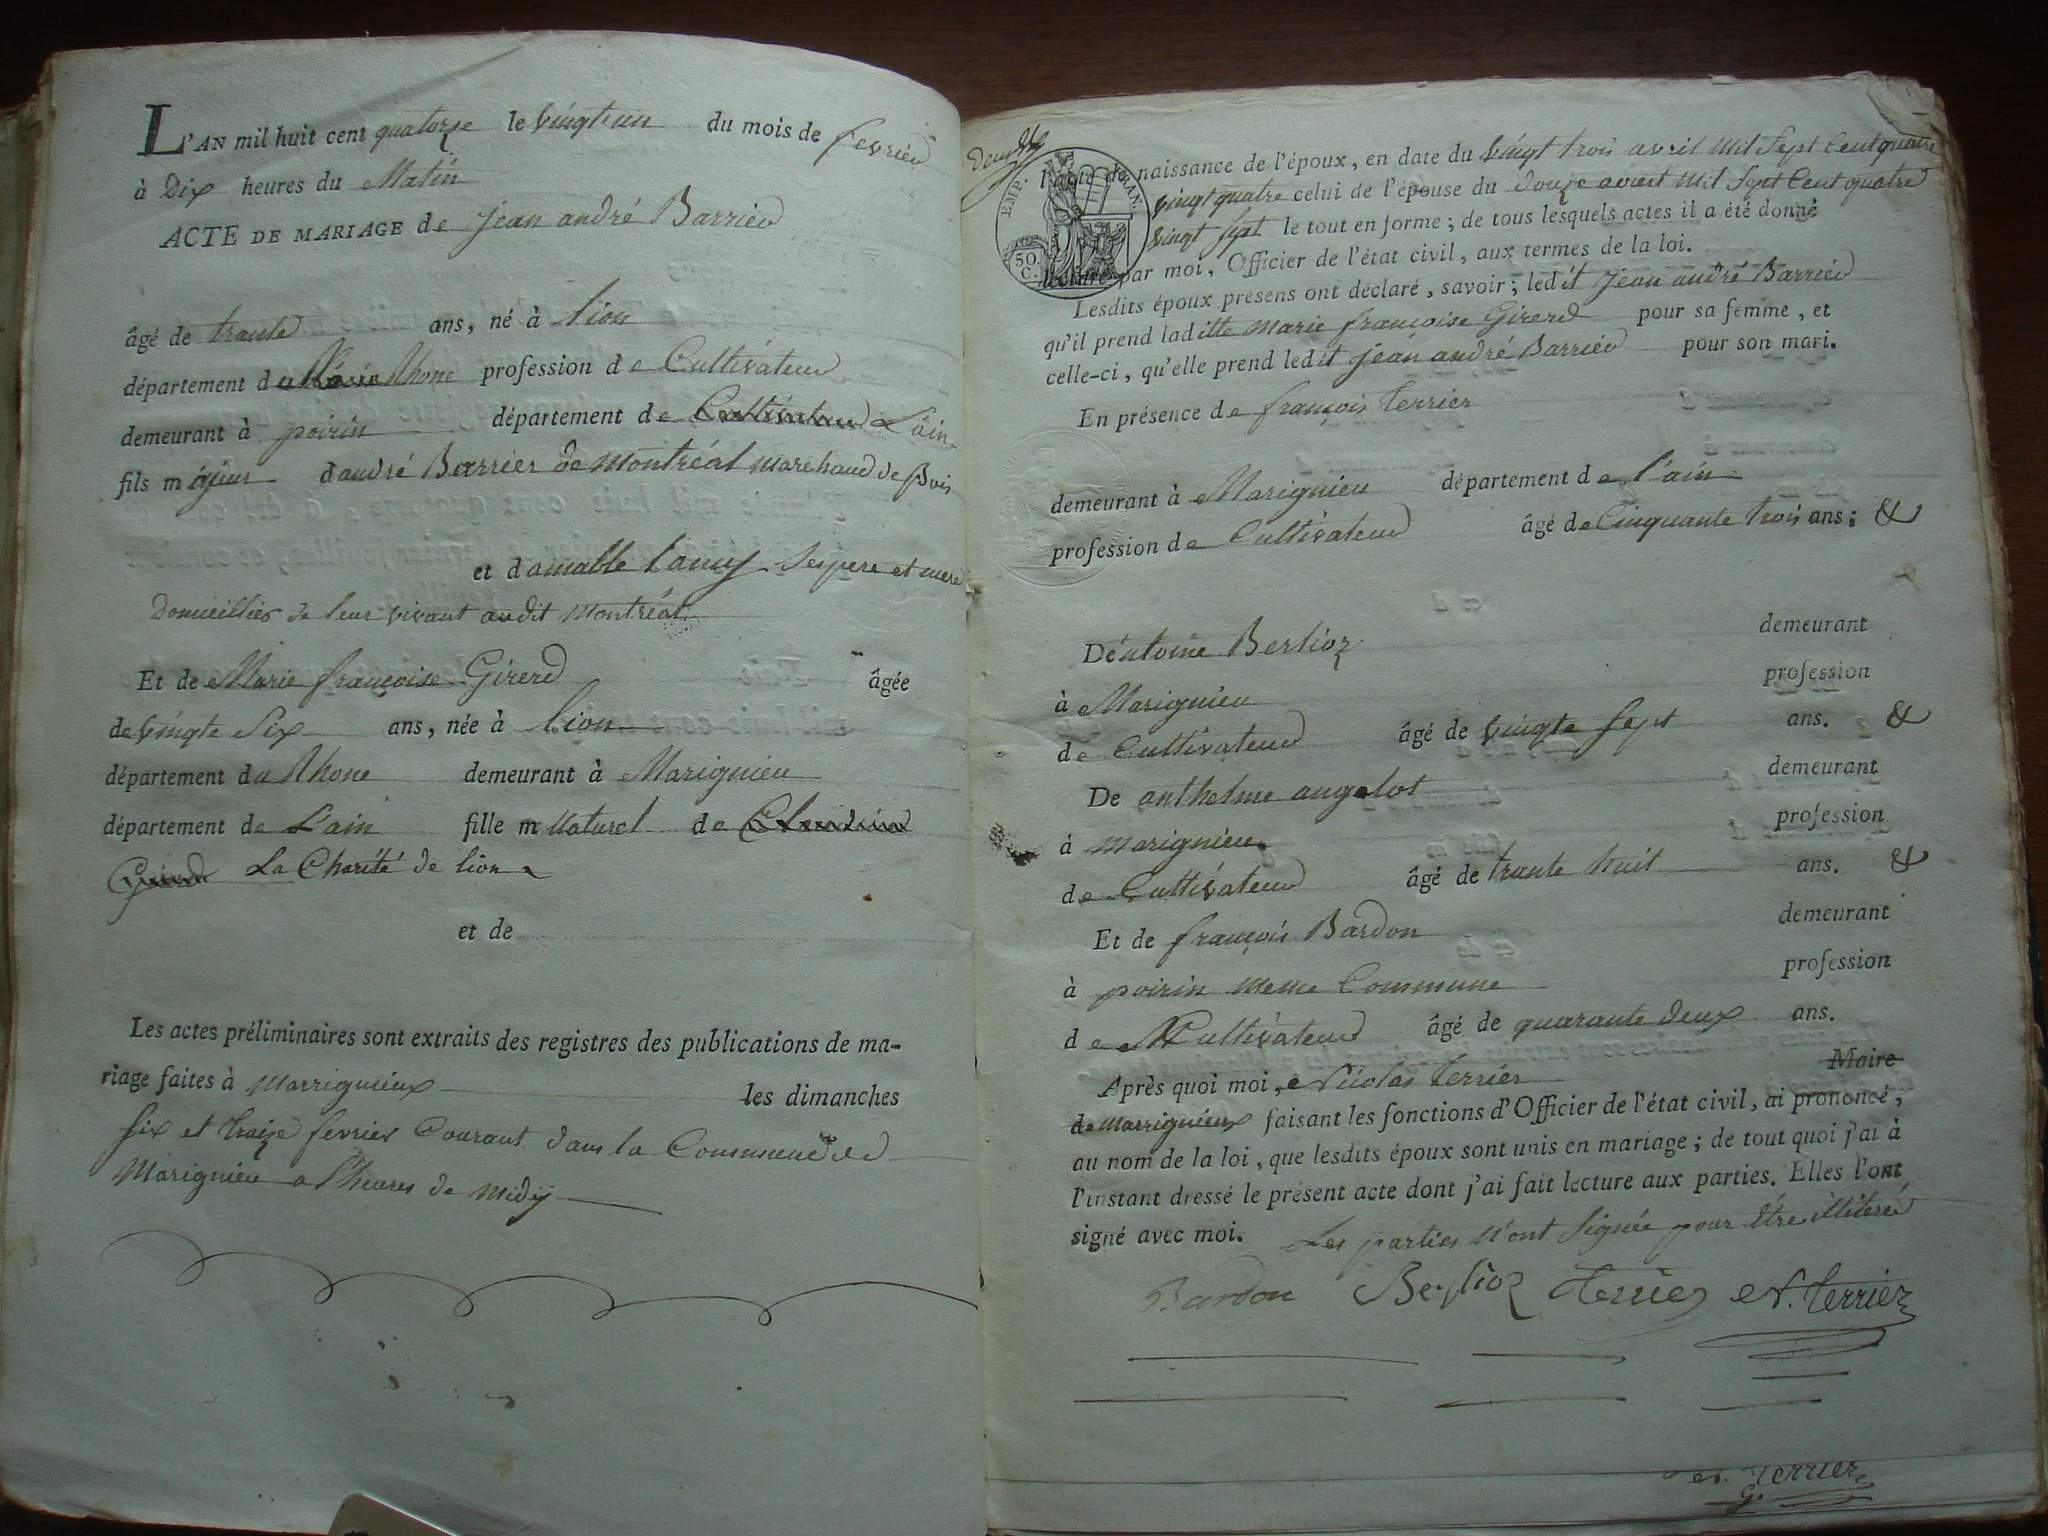 L'AN mil huit cent quatorze le vingt un du mois de fevrier
à Dix heures du Matin
ACTE DE MARIAGE de Jean andré Barrier
âgé de trante ans, né à lion
département du Rhone profession de Cultivateur
demeurant à poirin département de Cultivateur L'ain
fils majeur d'andré Barrier de montréal marchand de Bois
et d'amable lamy ses pere et mere
Domicilliés de leur vivant audit montréal
Et de Marie françoise Girerd âgée
de vingte Six ans, née à lion
département du Rhone demeurant à Marignieu
département de L'ain fille m Naturel de Claudine
Girerd La Charité de lion
et de
Les actes préliminaires sont extraits des registres des publications de ma-
riage faites à Marrignieux les dimanches
Six et traize fevrier Courant dans la Commune de
Marignieu a l'heures de midy
L'acte de naissance de l'époux, en date du vingt trois avril Mil Sept Cent quatre
EMP. FRAN.
50. C.
vingt quatre celui de l'épouse du douze avril Mil Sept Cent quatre
vingt Sept le tout en forme; de tous lesquels actes il a été donné
lecture par moi, Officier de l'état civil, aux termes de la loi.
Lesdits époux présens ont déclaré, savoir; ledit Jean andré Barrier
qu'il prend laditte marie françoise Girerd pour sa femme, et
celle-ci, qu'elle prend ledit jean andré Barrier pour son mari.
En présence de françois terrier
demeurant à Marignieu département de l'ain
profession de Cultivateur âgé de Cinquante trois ans; &
De antoine Berlioz demeurant
à Marignieu profession
de Cultivateur âgé de vingte Sept ans. &
De anthelme angelot demeurant
à marignieu profession
de Cultivateur âgé de trante huit ans. &
Et de françois Bardon demeurant
à poirin meme Commune profession
de Cultivateur âgé de quarante deux ans.
Après quoi moi, Nicolas terrier Maire
de Marrignieux faisant les fonctions d'Officier de l'état civil, ai prononcé,
au nom de la loi, que lesdits époux sont unis en mariage; de tout quoi j'ai à
l'instant dressé le présent acte dont j'ai fait lecture aux parties. Elles l'ont
signé avec moi. Les parties n'ont Signée pour être illiteré
Bardon Berlioz terrier N. terrier
N. Terrier